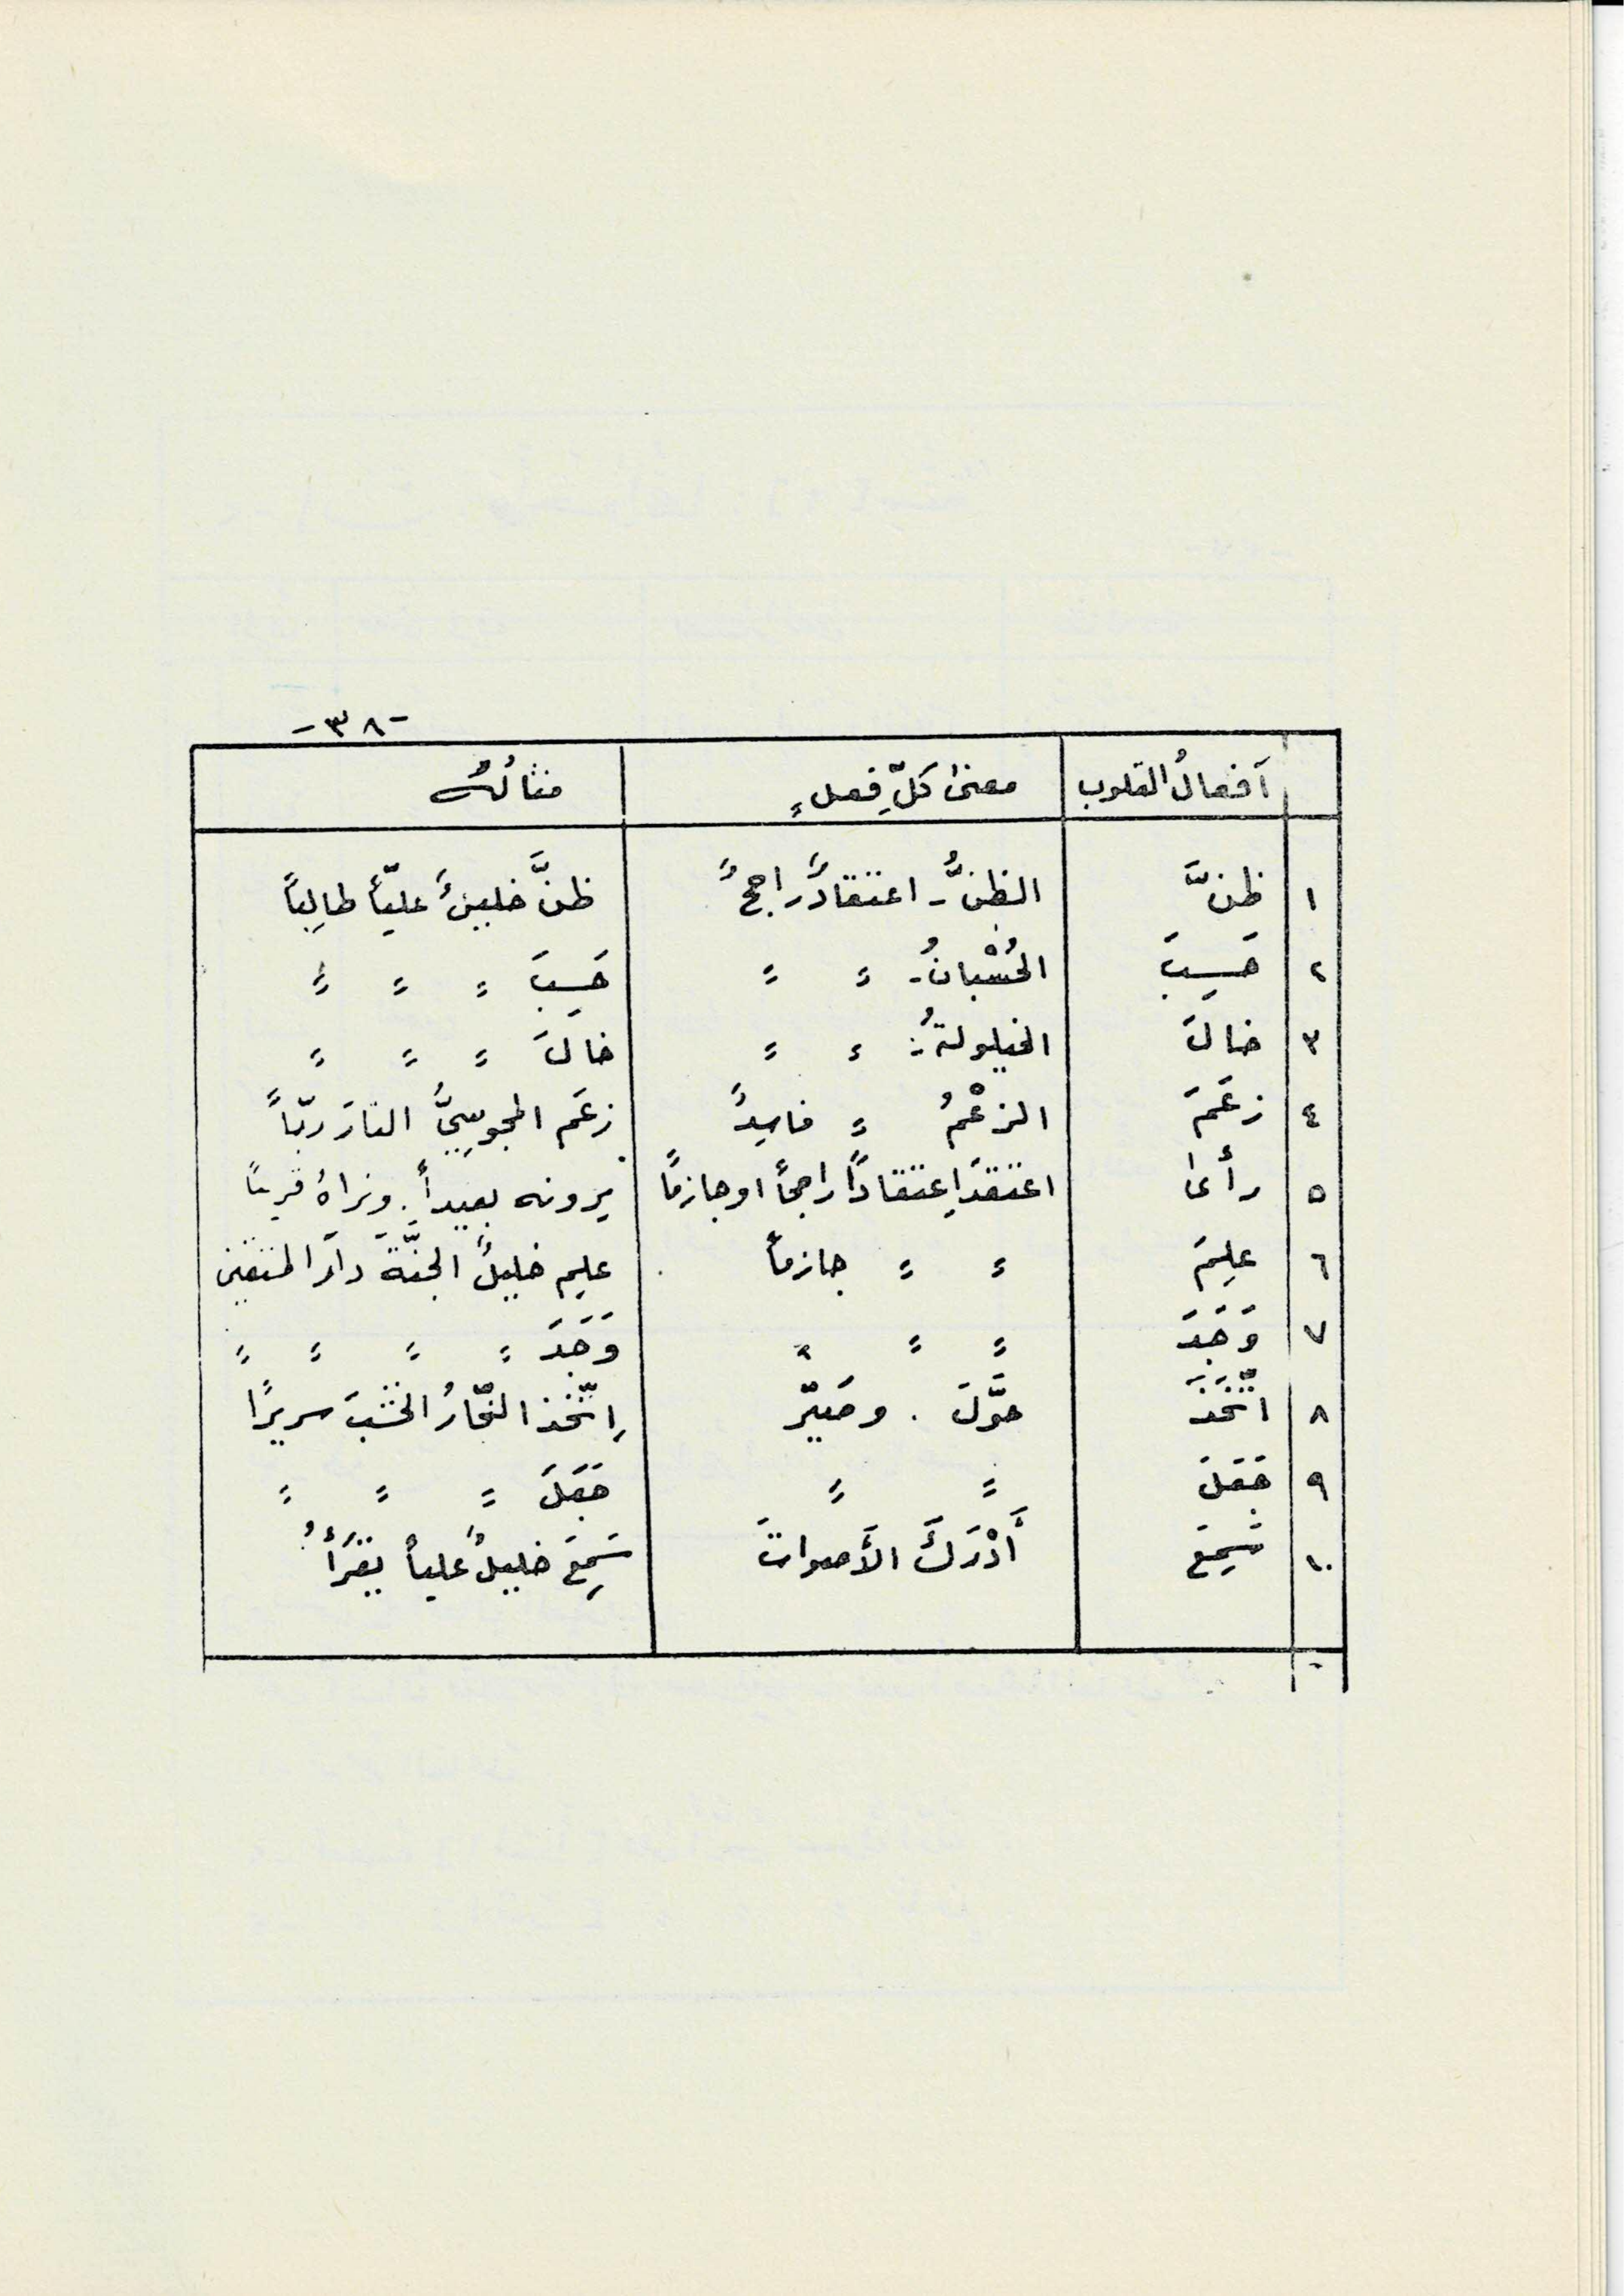 -٣٨-
أفعالُ القلوب معنى كلِّ فِعلٍ مثالُهُ
١ ظنَّ الظنُّ - اعتقادٌ راجحٌ ظنَّ خليلٌ عليّاً طالِباً
٢ حَسِبَ الحُسْبانُ - = = حَسِبَ = = =
٣ خالَ الخيلولةُ: = = خالَ = = =
٤ زعَمَ الزعْمُ = فاسِدٌ زعَم المجوسِيُّ النارَ ربّاً
٥ رأى اعتقدَ اِعتقادًا راجحاً او جازمًا يرونه بعيداً. ونراهُ قريباً
٦ علِمَ = = جازماً علِم خليلٌ الجنَّةَ دارَ المتقين
٧ وَجَدَ = = = وَجَدَ = = = =
٨ اتَّخَذَ حوَّلَ . وصَيّر اِتّخذ النجّارُ الخشبَ سريرًا
٩ جَعَلَ = = جَعَلَ = = =
١٠ سَمِعَ أَدْرَكَ الأَصواتَ سَمِعَ خليلٌ علياً يقرَأُ